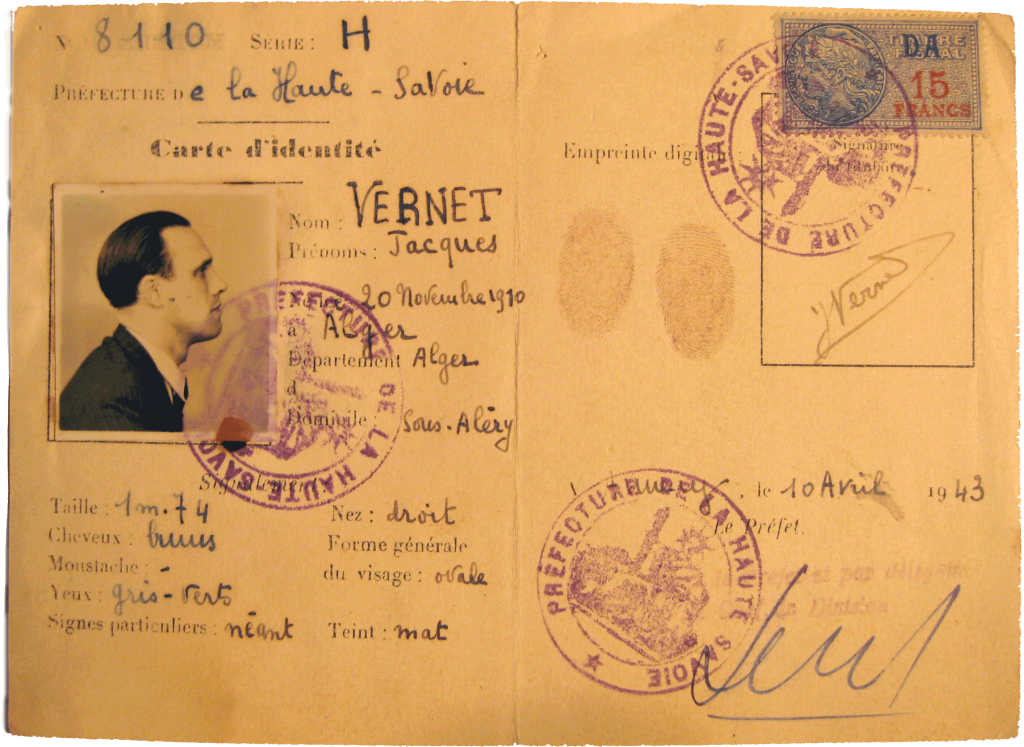 N° 8110 SÉRIE : H
PRÉFECTURE De la Haute - Savoie
Carte d'identité
Nom : VERNET
Prénoms : Jacques
20 Novembre 1910
à Alger
Département Alger
d
Domicile : Sous-Aléry
Signalement
Taille : 1m.74
Cheveux : bruns
Moustache : -
Yeux : gris-verts
Signes particuliers : néant
Nez : droit
Forme générale
du visage : ovale
Teint : mat
PRÉFECTURE DE LA HAUTE-SAVOIE
TIMBRE
FISCAL
DA
15
FRANCS
Empreinte digitale :
Signature
du titulaire
JVernet
PRÉFECTURE DE LA HAUTE-SAVOIE
Annecy, le 10 Avril 1943
Le Préfet.
Le Préfet et par délégation
Chef de Division
PRÉFECTURE DE LA HAUTE SAVOIE